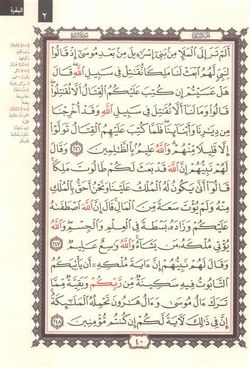 البقرة
٢
أَلَمْ تَرَ إِلَى ٱلْمَلَإِ مِنۢ بَنِىٓ إِسْرَٰٓءِيلَ مِنۢ بَعْدِ مُوسَىٰٓ إِذْ قَالُوا۟
لِنَبِىٍّ لَّهُمُ ٱبْعَثْ لَنَا مَلِكًا نُّقَٰتِلْ فِى سَبِيلِ ٱللَّهِ قَالَ
هَلْ عَسَيْتُمْ إِن كُتِبَ عَلَيْكُمُ ٱلْقِتَالُ أَلَّا تُقَٰتِلُوا۟
قَالُوا۟ وَمَا لَنَآ أَلَّا نُقَٰتِلَ فِى سَبِيلِ ٱللَّهِ وَقَدْ أُخْرِجْنَا
مِن دِيَٰرِنَا وَأَبْنَآئِنَا فَلَمَّا كُتِبَ عَلَيْهِمُ ٱلْقِتَالُ تَوَلَّوْا۟
إِلَّا قَلِيلًا مِّنْهُمْ وَٱللَّهُ عَلِيمٌۢ بِٱلظَّٰلِمِينَ ٢٤٦
وَقَالَ لَهُمْ نَبِيُّهُمْ إِنَّ ٱللَّهَ قَدْ بَعَثَ لَكُمْ طَالُوتَ مَلِكًا
قَالُوٓا۟ أَنَّىٰ يَكُونُ لَهُ ٱلْمُلْكُ عَلَيْنَا وَنَحْنُ أَحَقُّ بِٱلْمُلْكِ
مِنْهُ وَلَمْ يُؤْتَ سَعَةً مِّنَ ٱلْمَالِ قَالَ إِنَّ ٱللَّهَ ٱصْطَفَىٰهُ
عَلَيْكُمْ وَزَادَهُۥ بَسْطَةً فِى ٱلْعِلْمِ وَٱلْجِسْمِ وَٱللَّهُ
يُؤْتِى مُلْكَهُۥ مَن يَشَآءُ وَٱللَّهُ وَٰسِعٌ عَلِيمٌ ٢٤٧
وَقَالَ لَهُمْ نَبِيُّهُمْ إِنَّ ءَايَةَ مُلْكِهِۦٓ أَن يَأْتِيَكُمُ
ٱلتَّابُوتُ فِيهِ سَكِينَةٌ مِّن رَّبِّكُمْ وَبَقِيَّةٌ مِّمَّا
تَرَكَ ءَالُ مُوسَىٰ وَءَالُ هَٰرُونَ تَحْمِلُهُ ٱلْمَلَٰٓئِكَةُ
إِنَّ فِى ذَٰلِكَ لَءَايَةً لَّكُمْ إِن كُنتُم مُّؤْمِنِينَ ٢٤٨
٤٠